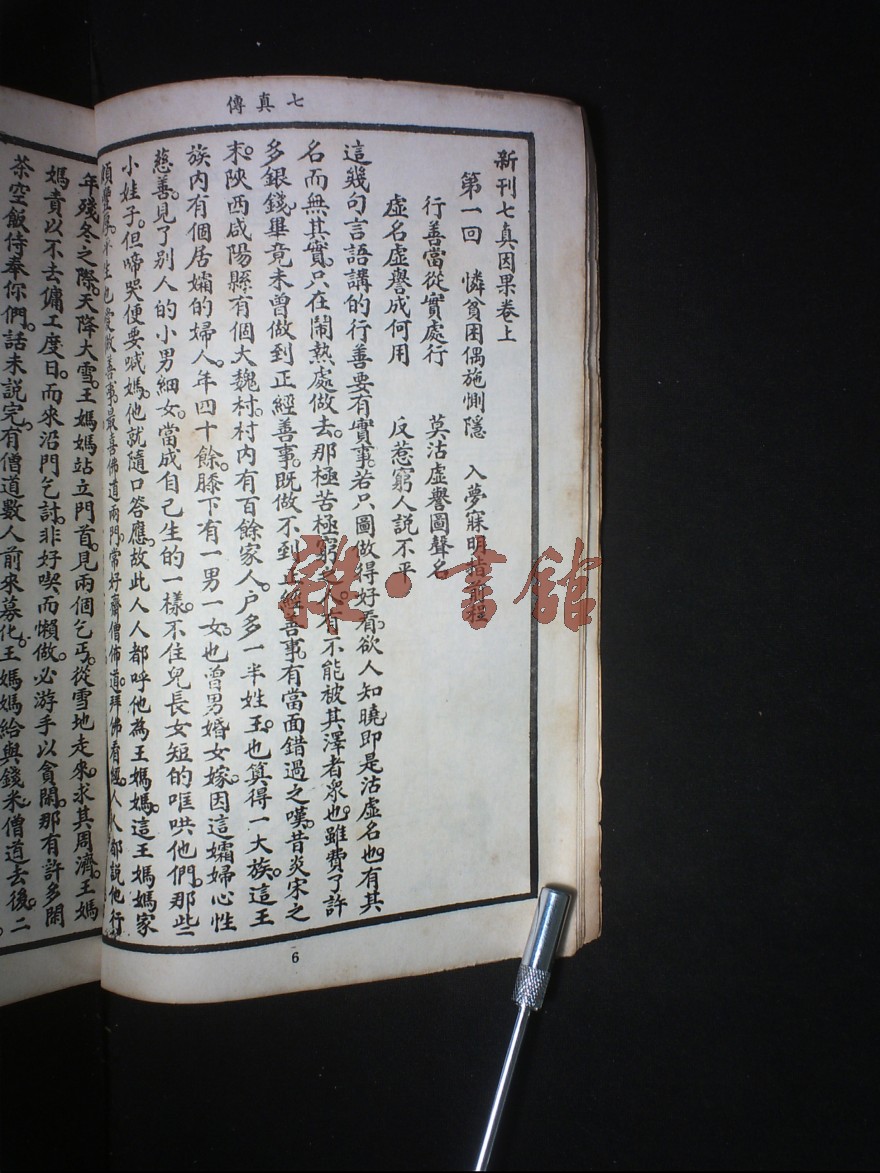 七真傳
新刊七真因果卷上
第一回　憐貧困偶施惻隱　入夢寐明指前程
行善當從實處行　莫沽虛譽圖聲名
虛名虛譽成何用　反惹窮人説不平
這幾句言語講的行善要有實事。若只圖做得好看。欲人知曉即是沽虛名也。有其
名而無其實。只在鬧熱處做去。那極苦極窮之人。有不能被其澤者衆也。雖費了許
多銀錢。畢竟未曾做到正經善事。既做不到正經善事。有當面錯過之嘆。昔炎宋之
末。陝西咸陽縣有個大魏村。村內有百餘家人户多一半姓王。也算得一大族。這王
族內有個居孀的婦人。年四十餘。膝下有一男一女。也曾男婚女嫁。因這孀婦心性
慈善。見了别人的小男細女。當成自己生的一樣。不住兒長女短的哐哄他們。那些
小娃子。但啼哭便要喊媽。他就隨口答應。故此人人都呼他為王媽媽。這王媽媽家
也愛做善事。最喜佛道兩門。常好齋僧佈道。拜佛看經。人人都説他行
年殘冬之際。天降大雪。王媽媽站立門首。見兩個乞丐。從雪地走來。求其周濟。王媽
媽責以不去傭工度日。而來沿門乞討。非好喫而懶做。必游手以貪閑。那有許多閑
茶空飯侍奉你們。話未説完。有僧道數人前來募化。王媽媽給與錢米。僧道去後。二
6
雜·書館